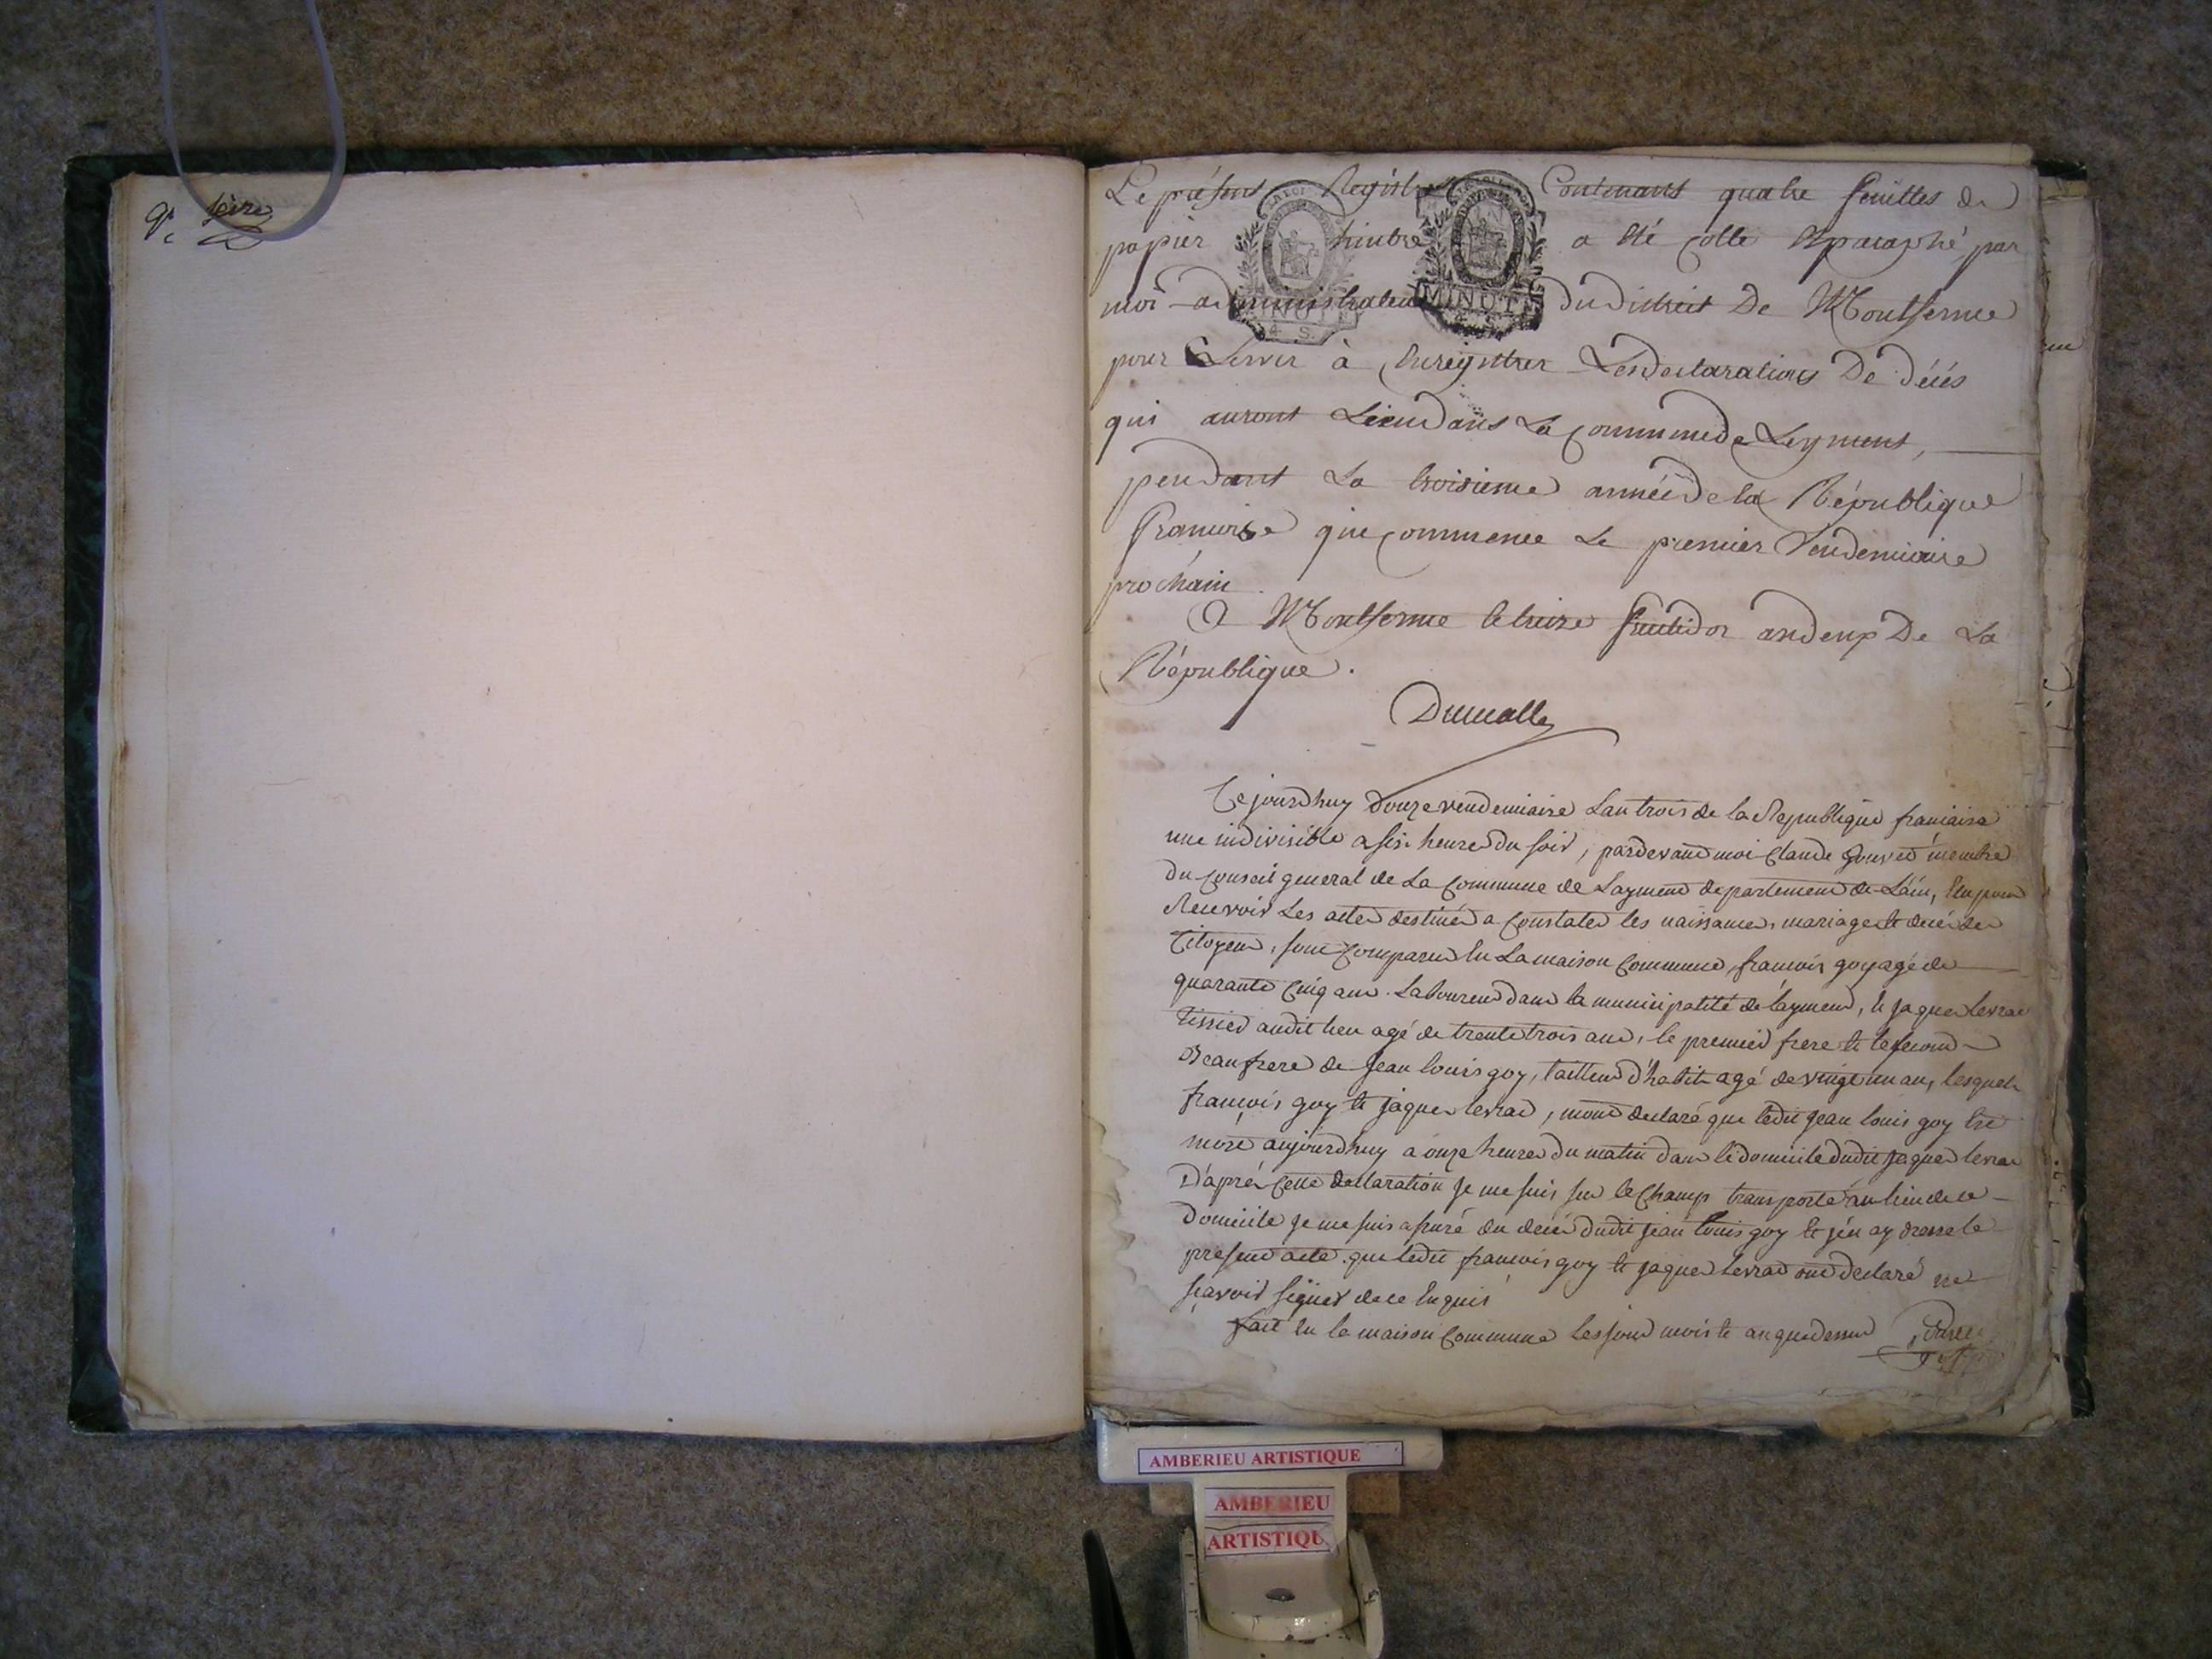 Le présent Registre Contenant quatre feuilles de
papier timbré a été Cotté & paraphé, par
moi administrateur du district De Montferme
pour Servir à Enregistrer Les declarations De décés
qui auront Lieu dans La Commune de Leyment,
pendant La troisieme année de la République
Francoise qui Commence Le premier Vendemiaire
prochain.
A Montferme le treize fructidor an deux De La
République.
LA LOI
MINUTE
4. S.
MINUTE
4. S.
Cejourdhuy douze vendemiaire Lan trois de la Republique francaise
une indivisible a six heures du soir, pardevant moi Claude membre
du Conseil general de La Commune de Layment departement de Lain, Elu pour
Recevoir Les actes destinés a Constater les naissances, mariages et decés des
Citoyens, sont Comparus En La maison Commune, francois goy agé de
quarante Cinq ans Laboureur dans la municipalité de layment, et jaques Levrat
tissier audit lieu agé de trente trois ans, le premier frere et le second
Beaufrere de Jean louis goy, tailleur d'habits agé de vingt un an, lesquels
francois goy et jaques levrat, mont declaré que ledit Jean louis goy Est
mort aujourdhuy a onze heures du matin dans le domicile dudit jaques levrat
D'aprés Cette declaration Je me suis sur le Champ transporté au lieu de ce
Domicile Je me suis assuré du décés dudit jean louis goy et jén ay dressé le
present acte que ledit francois goy et jaques levrat ont declaré ne
sçavoir signer de ce Enquis
fait En la maison Commune les jour mois et an que dessus
AMBERIEU ARTISTIQUE
AMBERIEU
ARTISTIQU